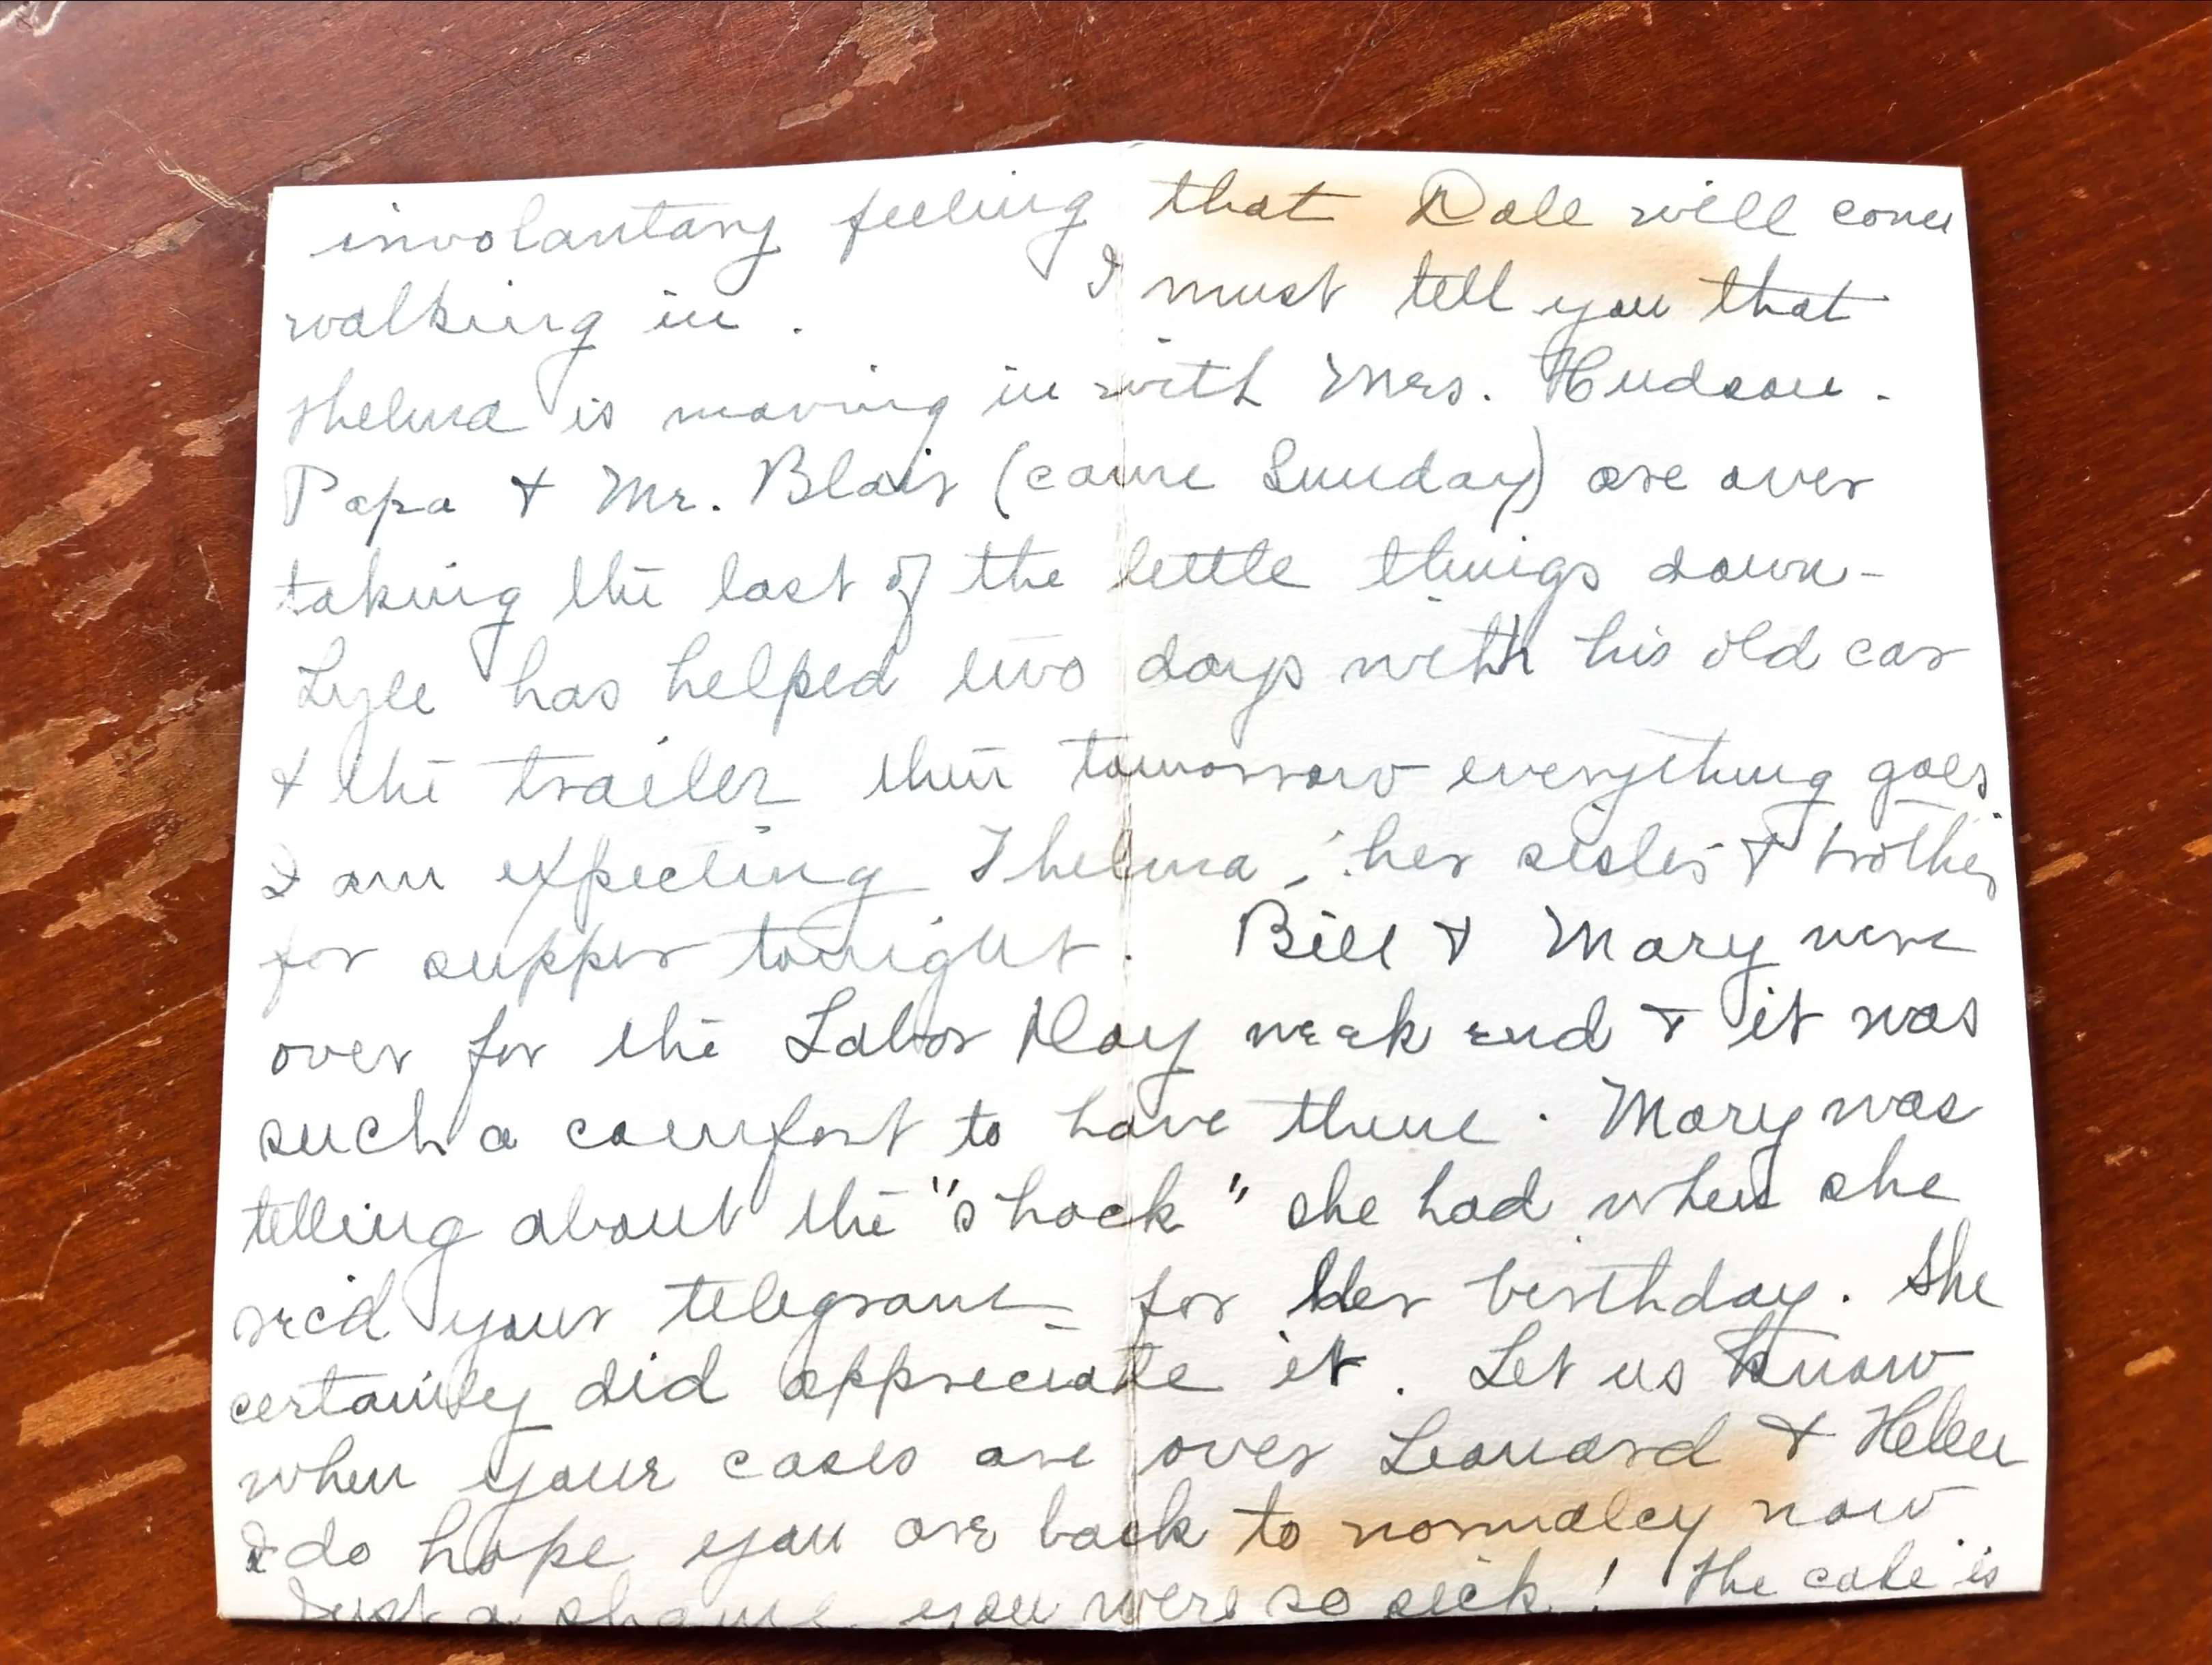 involantary feeling that Dale will come
walking in. I must tell you that
Thelma is moving in with Mrs. Hudson.
Papa & Mr. Blair (came Sunday) are over
taking the last of the little things down-
Lyle has helped two days with his old car
& the trailer then tomorrow everything goes.
I am expecting Thelma, her sister & brother
for supper tonight. Bill & Mary were
over for the Labor Day week end & it was
such a comfort to have them. Mary was
telling about the "shock" she had when she
rec'd your telegram for her birthday. She
certainly did appreciate it. Let us know
when your cases are over Leonard & Helen
I do hope you are back to normalcy now
Just a shame you were so sick! The cake is